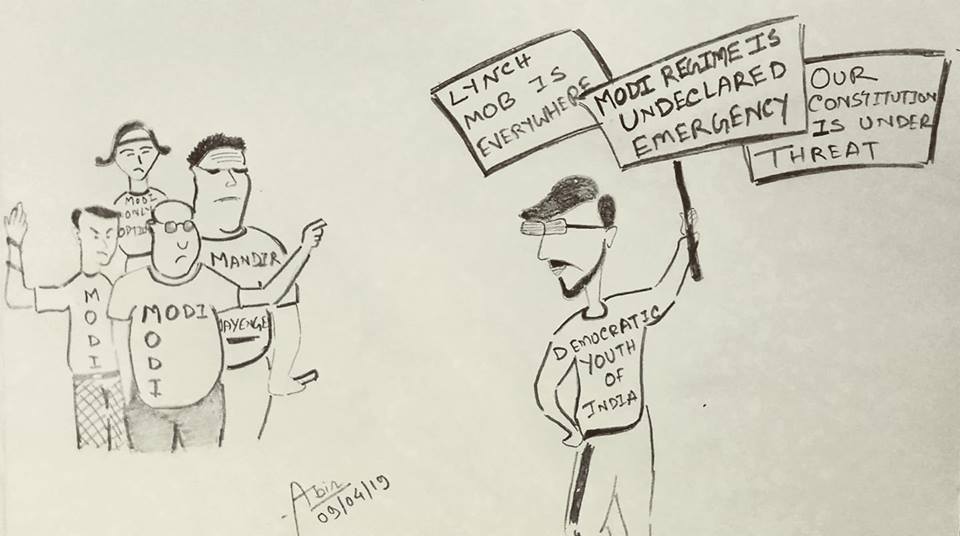 LYNCH
MOB IS
EVERYWHERE
MODI REGIME IS
UNDECLARED
EMERGENCY
OUR
CONSTITUTION
IS UNDER
THREAT
MODI
ONLY
MODI
MODI
MODI
MANDIR
DEMOCRATIC
YOUTH
OF
INDIA
Abir
09/04/19